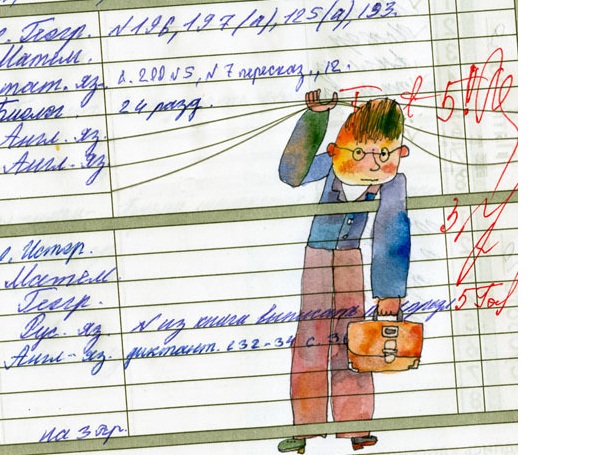 Геогр. №196, 197(а), 125(а), 193.
Матем.
тат. яз. с. 200 №5, №7 пересказ., 12.
Биолог. 24 разд.
Англ. яз.
Англ. яз
5!
Истор.
3,
Матем
Геогр.
5
Рус. яз № из книги выписать
Англ-яз. диктант. с 32-34 с. 3
на 3 тр.